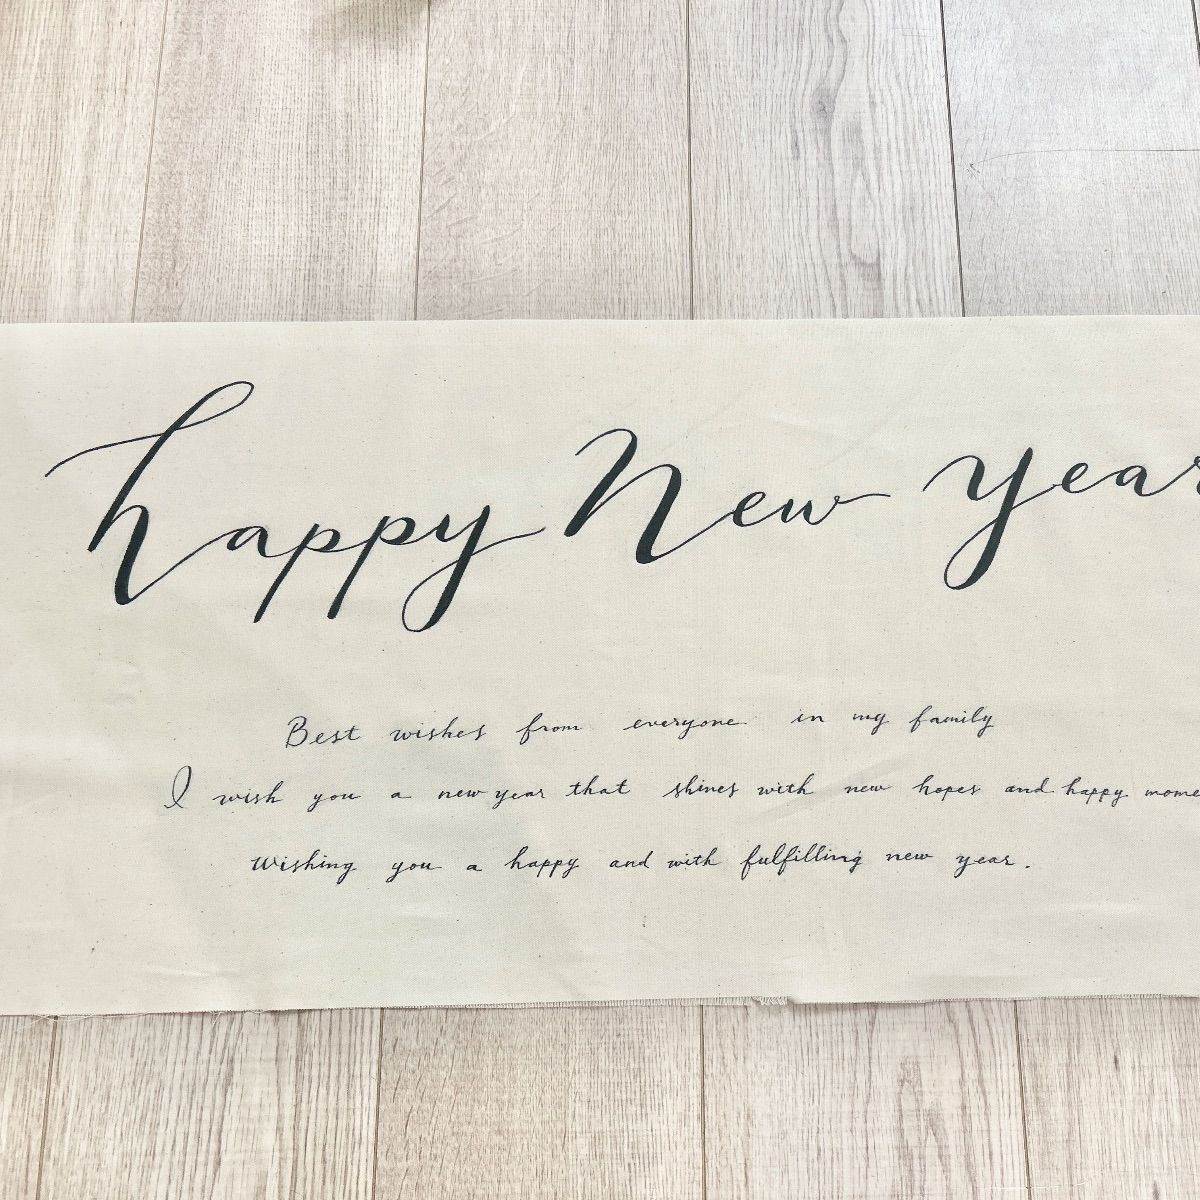 happy New year
Best wishes from everyone in my family
I wish you a new year that shines with new hopes and happy mome
Wishing you a happy and with fulfilling new year.